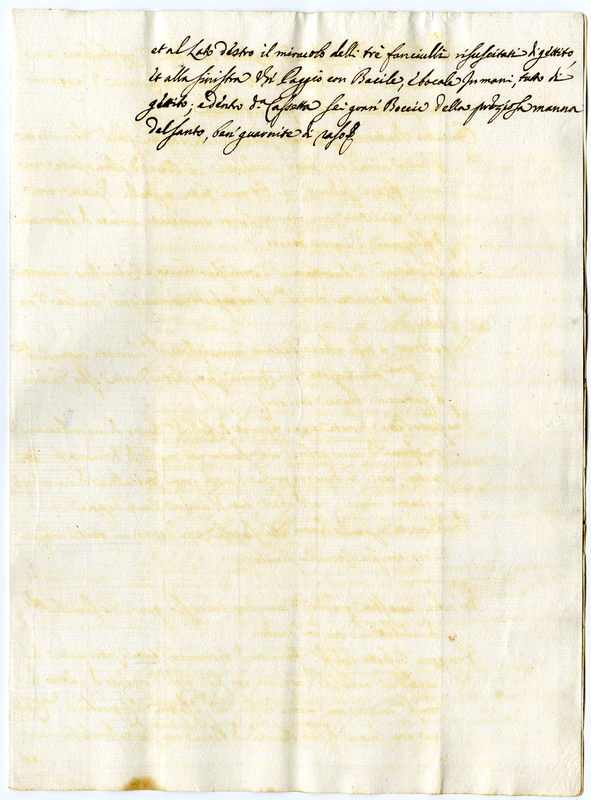 et al Lato destro il miracolo delli trè fanciulli risuscitati di gettito,
et alla sinistra Un Paggio con Bacile, è bocale In mani, tutto di
gettito; e dentro d.ª Cassetta sei gran Boccie della pretiosa manna
del Santo, ben guarnite di raso